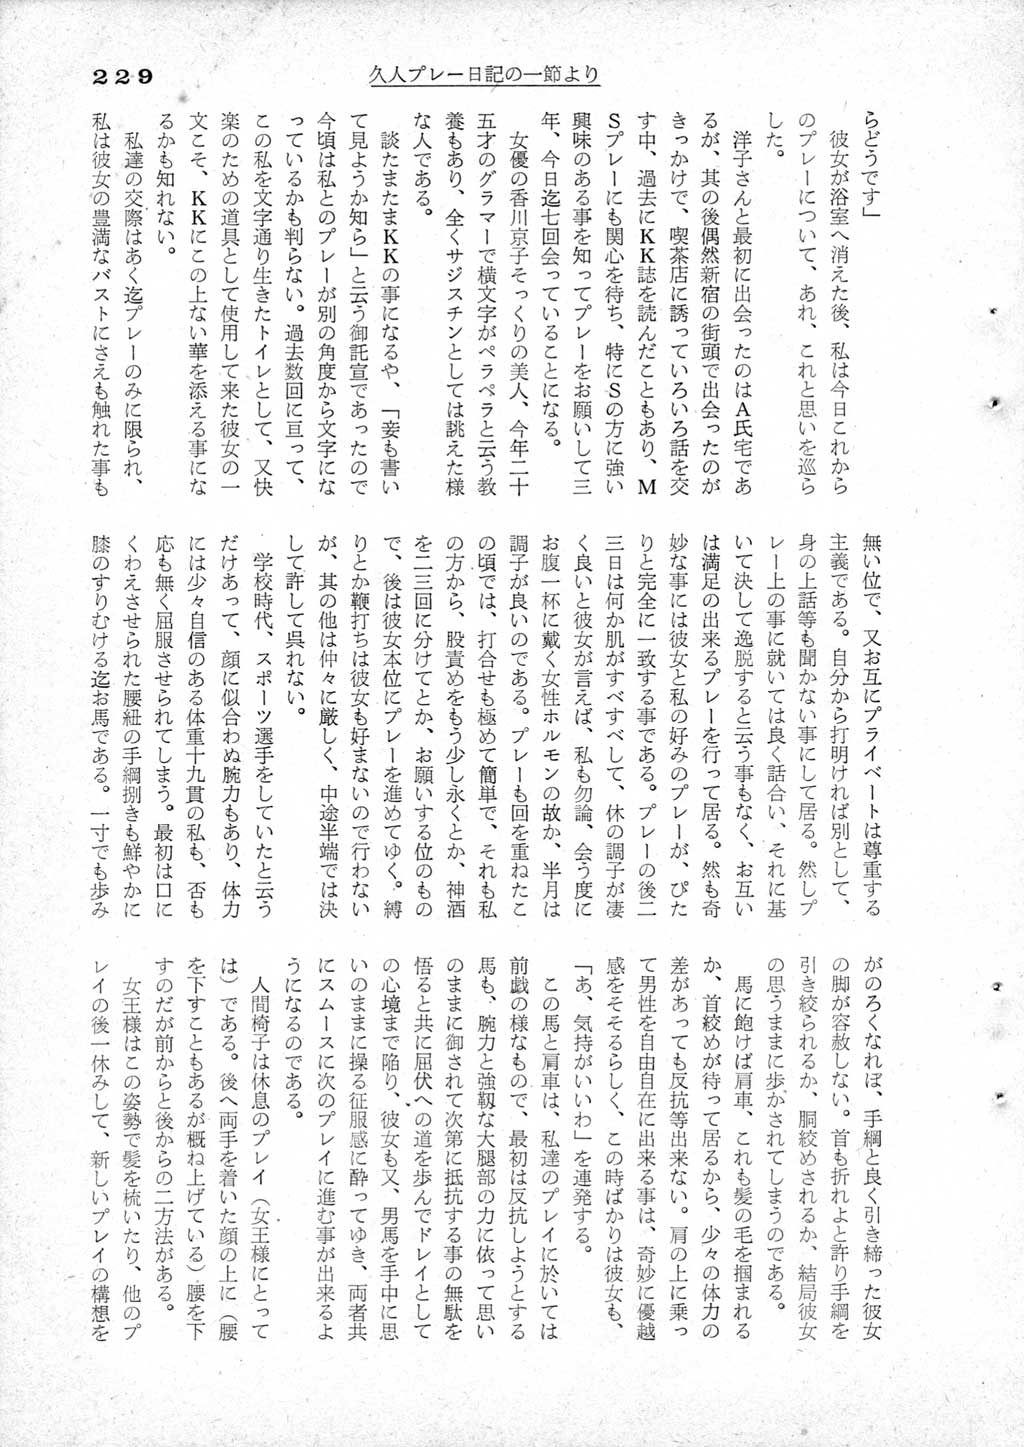 229
久人プレー日記の一節より
らどうです」
　彼女が浴室へ消えた後、私は今日これから
のプレーについて、あれ、これと思いを巡ら
した。
　洋子さんと最初に出会ったのはA氏宅であ
るが、其の後偶然新宿の街頭で出会ったのが
きっかけで、喫茶店に誘っていろいろ話を交
す中、過去にKK誌を読んだこともあり、M
Sプレーにも関心を待ち、特にSの方に強い
興味のある事を知ってプレーをお願いして三
年、今日迄七回会っていることになる。
　女優の香川京子そっくりの美人、今年二十
五才のグラマーで横文字がペラペラと云う教
養もあり、全くサジスチンとしては誂えた様
な人である。
　談たまたまKKの事になるや、「妾も書い
て見ようか知ら」と云う御託宣であったので
今頃は私とのプレーが別の角度から文字にな
っているかも判らない。過去数回に亘って、
この私を文字通り生きたトイレとして、又快
楽のための道具として使用して来た彼女の一
文こそ、KKにこの上ない華を添える事にな
るかも知れない。
　私達の交際はあく迄プレーのみに限られ、
私は彼女の豊満なバストにさえも触れた事も
無い位で、又お互にプライベートは尊重する
主義である。自分から打明ければ別として、
身の上話等も聞かない事にして居る。然しプ
レー上の事に就いては良く話合い、それに基
いて決して逸脱すると云う事もなく、お互い
は満足の出来るプレーを行って居る。然も奇
妙な事には彼女と私の好みのプレーが、ぴた
りと完全に一致する事である。プレーの後二
三日は何か肌がすべすべして、休の調子が凄
く良いと彼女が言えば、私も勿論、会う度に
お腹一杯に戴く女性ホルモンの故か、半月は
調子が良いのである。プレーも回を重ねたこ
の頃では、打合せも極めて簡単で、それも私
の方から、股責めをもう少し永くとか、神酒
を二三回に分けてとか、お願いする位のもの
で、後は彼女本位にプレーを進めてゆく。縛
りとか鞭打ちは彼女も好まないので行わない
が、其の他は仲々に厳しく、中途半端では決
して許して呉れない。
　学校時代、スポーツ選手をしていたと云う
だけあって、顔に似合わぬ腕力もあり、体力
には少々自信のある体重十九貫の私も、否も
応も無く屈服させられてしまう。最初は口に
くわえさせられた腰紐の手綱捌きも鮮やかに
膝のすりむける迄お馬である。一寸でも歩み
がのろくなれば、手綱と良く引き締った彼女
の脚が容赦しない。首も折れよと許り手綱を
引き絞られるか、胴絞めされるか、結局彼女
の思うままに歩かされてしまうのである。
　馬に飽けば肩車、これも髪の毛を掴まれる
か、首絞めが待って居るから、少々の体力の
差があっても反抗等出来ない。肩の上に乗っ
て男性を自由自在に出来る事は、奇妙に優越
感をそそるらしく、この時ばかりは彼女も、
「あ、気持がいいわ」を連発する。
　この馬と肩車は、私達のプレイに於いては
前戯の様なもので、最初は反抗しようとする
馬も、腕力と強靱な大腿部の力に依って思い
のままに御されて次第に抵抗する事の無駄を
悟ると共に屈伏への道を歩んでドレイとして
の心境まで陥り、彼女も又、男馬を手中に思
いのままに操る征服感に酔ってゆき、両者共
にスムースに次のプレイに進む事が出来るよ
うになるのである。
　人間椅子は休息のプレイ（女王様にとって
は）である。後へ両手を着いた顔の上に（腰
を下すこともあるが概ね上げている）腰を下
すのだが前からと後からの二方法がある。
　女王様はこの姿勢で髪を梳いたり、他のプ
レイの後一休みして、新しいプレイの構想を